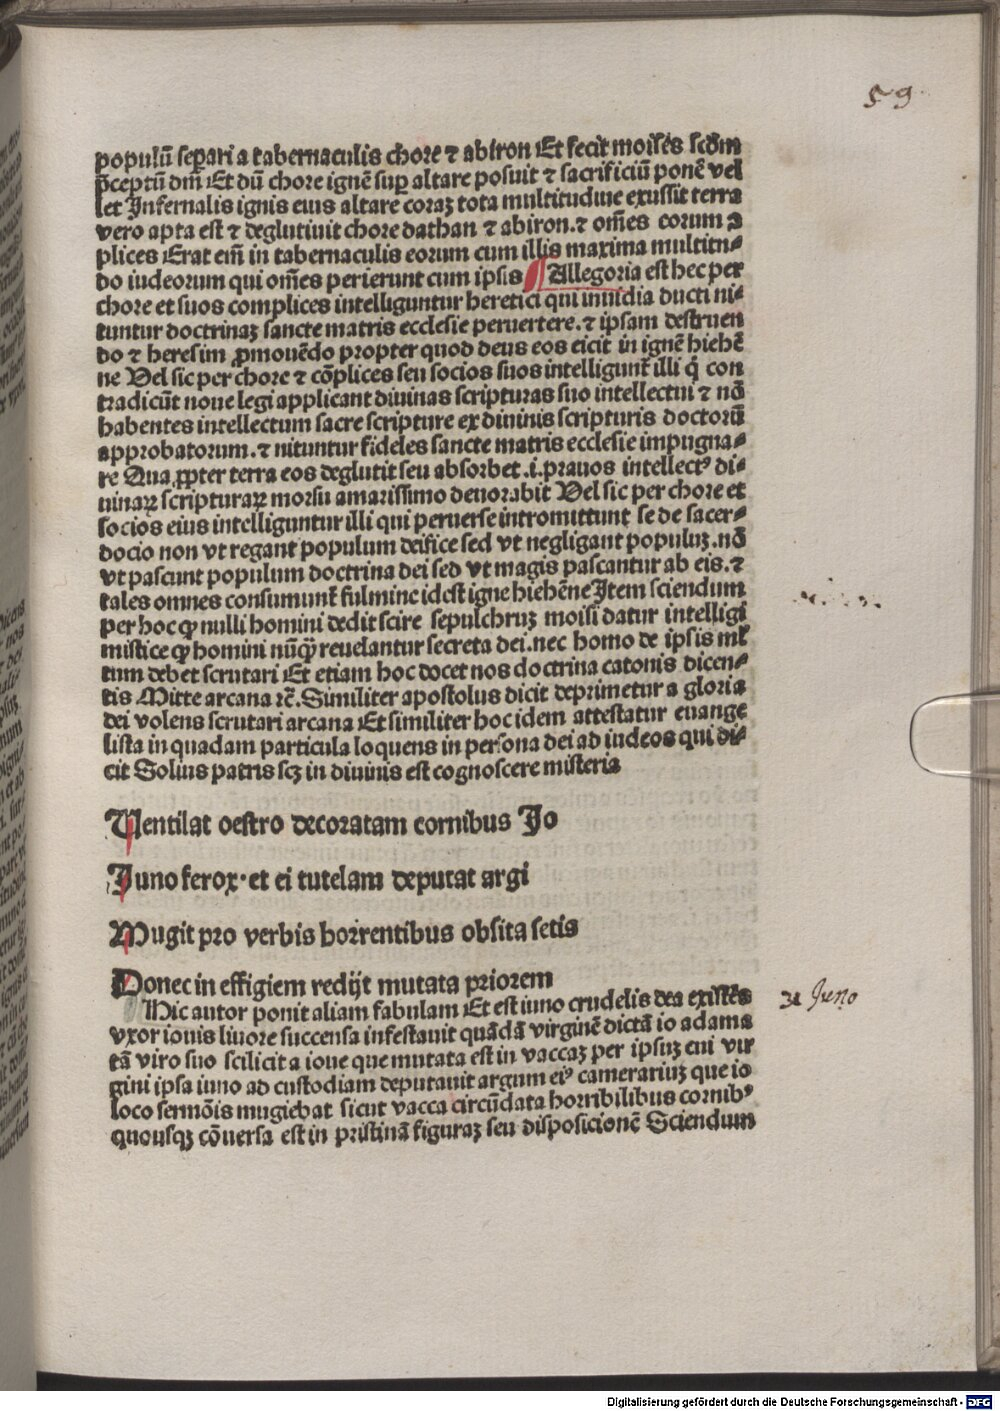 59
populū seꝑari a tabernaculis chore ⁊ abiron Et fecit moises scḋm
p̄ceptū dm̄ Et dū chore ignē suꝑ altare posuit ⁊ sacrificiū ponē vel
let Infernalis ignis eius altare coraꝫ tota multitudine exussit terra
vero apta est ⁊ deglutiuit chore dathan ⁊ abiron .⁊ om̄es eorum ꝯ
plices Erat em̄ in tabernaculis eorum cum illis maxima multitu⸗
do iudeorum qui om̄es perierunt cum ipsis ¶ Allegoria est hec per
chore et suos complices intelliguntur heretici qui inuidia ducti ni⸗
tuntur doctrinaꝫ sancte matris ecclesie peruertere .⁊ ipsam destruen
do ⁊ heresim ꝓmouēdo propter quod deus eos eicit in ignē hiehē
ne Vel sic per chore ⁊ cōplices seu socios suos intelligunt̄ illi q̄ con
tradicūt noue legi applicant diuinas scripturas suo intellectui ⁊ nō
habentes intellectum sacre scripture ex diuinis scripturis doctorū
approbatorum .⁊ nituntur fideles sancte matris ecclesie impugna⸗
re Qua ꝓpter terra eos deglutit seu absorbet .i. prauos intellectꝰ di⸗
uinaꝝ scripturaꝝ morsu amarissimo deuorabit Vel sic per chore et
socios eius intelliguntur illi qui peruerse intromittunt se de sacer⸗
docio non vt regant populum deifice sed vt negligant populuꝫ .nō
vt pascunt populum doctrina dei sed vt magis pascantur ab eis .⁊
tales omnes consumunt̄ fulmine id est igne hiehēne Item sciendum
per hoc ꝙ nulli homini dedit scire sepulchruꝫ moisi datur intelligi
mistice ꝙ homini nūꝗ̄ reuelantur secreta dei .nec homo de ipsis ml̄
tum debet scrutari Et etiam hoc docet nos doctrina catonis dicen⸗
tis Mitte arcana rc̄. Similiter apostolus dicit deprimetur a gloria
dei volens scrutari arcana Et similiter hoc idem attestatur euange
lista in quadam particula loquens in persona dei ad iudeos qui di⸗
cit Solius patris scꝫ in diuinis est cognoscere misteria
Ventilat oestro decoratam cornibus Jo
Juno ferox· et ei tutelam deputat argi
Mugit pro verbis horrentibus obsita setis
Donec in effigiem redijt mutata priorem
Hic autor ponit aliam fabulam Et est iuno crudelis dea existēs
vxor iouis liuore succensa infestauit quādā virginē dictā io adama
tā viro suo scilicit a ioue que mutata est in vaccaꝫ per ipsuꝫ cui vir
gini ipsa iuno ad custodiam deputauit argum eiꝰ camerariuꝫ que io
loco sermōis mugiebat sicut vacca circūdata horribilibus cornibꝰ
quousqꝫ cōuersa est in pristinā figuraꝫ seu disposicionē Sciendum
31 Juno
Digitalisierung gefördert durch die Deutsche Forschungsgemeinschaft - DFG